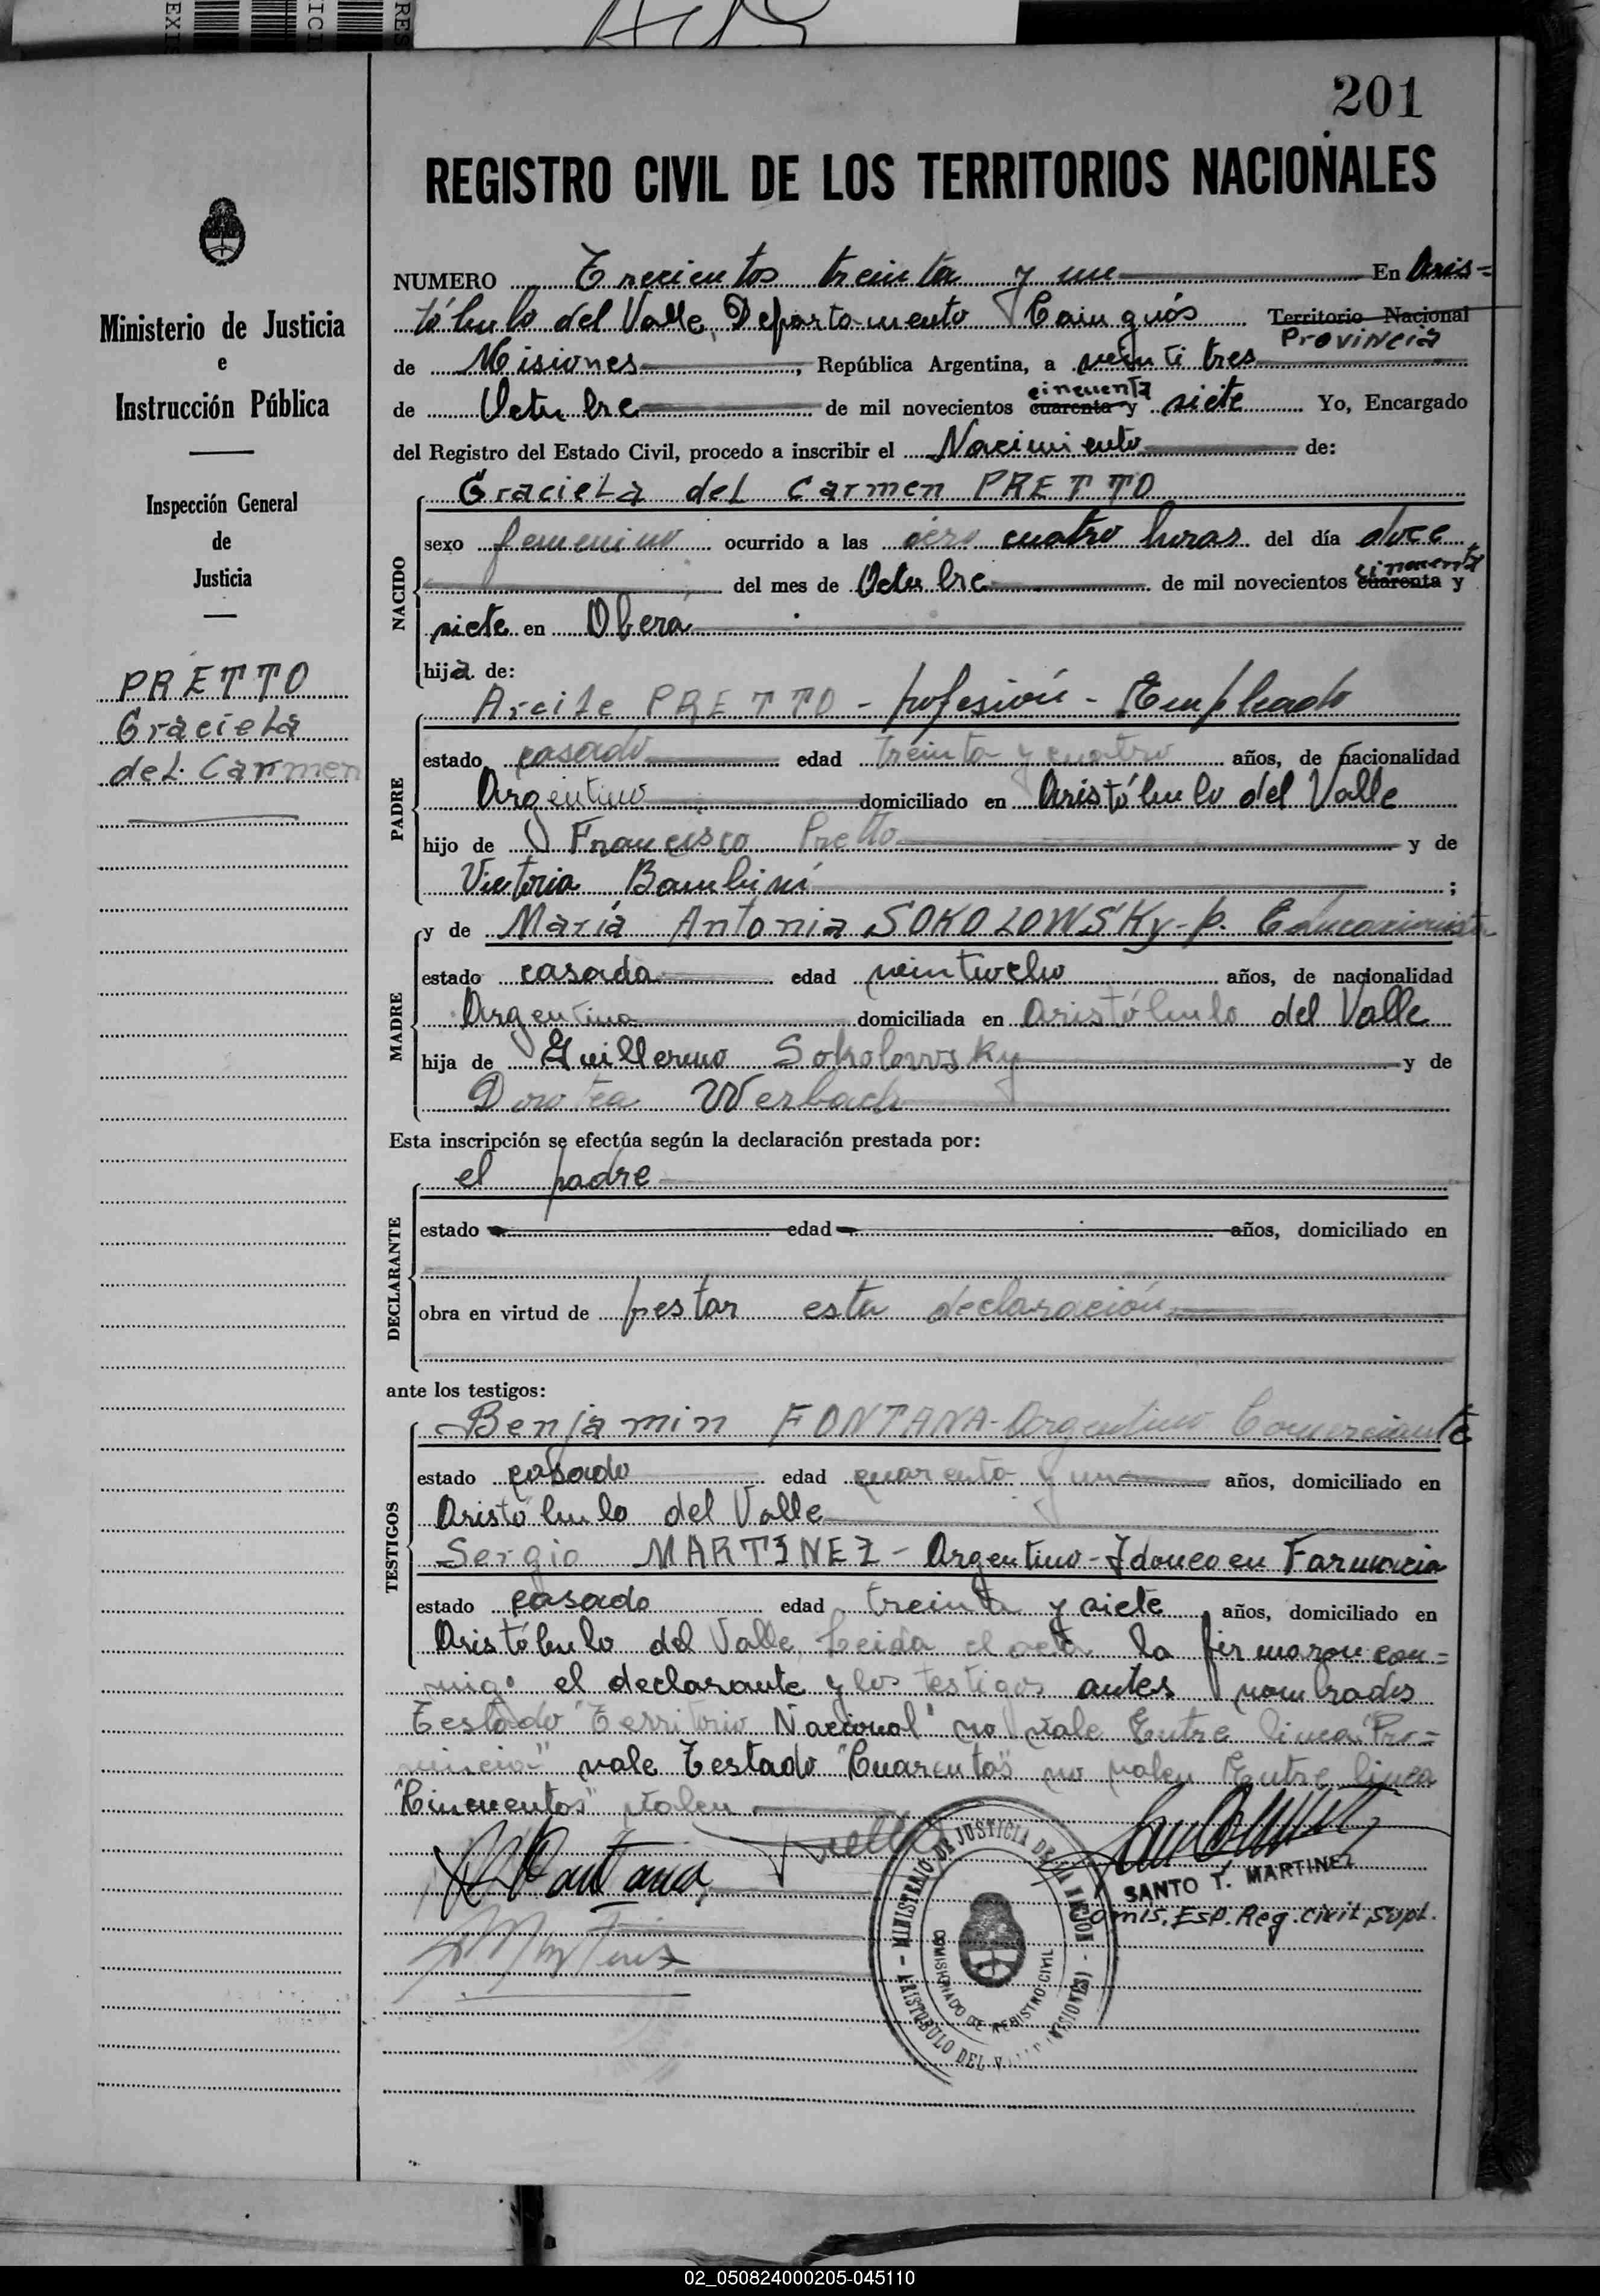 201
REGISTRO CIVIL DE LOS TERRITORIOS NACIONALES
Ministerio de Justicia
e
Instrucción Pública
Inspección General
de
Justicia
PRETTO
Graciela
del Carmen
NUMERO Trecientos treinta y un En Aris=
tóbulo del Valle, Departamento Cainguós Territorio Nacional
Provincia
de Misiones, República Argentina, a veinti tres
de Octubre de mil novecientos cuarenta y siete Yo, Encargado
cincuenta
del Registro del Estado Civil, procedo a inscribir el Nacimiento de:
NACIDO
Graciela del Carmen PRETTO
sexo femenino ocurrido a las cero cuatro horas del día doce
del mes de Octubre de mil novecientos cuarenta y
cincuenta
siete en Oberá
hija de:
PADRE
Arcite PRETTO - profesión - Empleado
estado casado edad treinta y cuatro años, de nacionalidad
Argentino domiciliado en Aristóbulo del Valle
hijo de Francisco Pretto y de
Victoria Bambini ;
MADRE
y de María Antonia SOKOLOWSKy-p. Educacionista
estado casada edad veintiocho años, de nacionalidad
Argentina domiciliada en Aristóbulo del Valle
hija de Guillermo Sokolowsky y de
Dorotea Werbach
Esta inscripción se efectúa según la declaración prestada por:
DECLARANTE
el padre
estado edad años, domiciliado en
obra en virtud de pestar esta declaración
ante los testigos:
TESTIGOS
Benjamin FONTANA-Argentino Comerciante
estado casado edad cuarenta y un años, domiciliado en
Aristóbulo del Valle
Sergio MARTINEZ - Argentino - Idoneo en Farmacia
estado casado edad treinta y siete años, domiciliado en
Aristóbulo del Valle, Leida el acta la firmaron con=
migo el declarante y los testigos antes nombrados
Testado "Territorio Nacional" no vale Entre linea "Pro=
vincia" vale Testado "Cuarentas" no valen Entre linea
"Cincuentas" valen
MINISTERIO DE JUSTICIA DE LA NACION
ARISTOBULO DEL VALLE (MISIONES)
COMISIONADO DE REGISTRO CIVIL
SANTO T. MARTINEZ
Comis. Esp. Reg. civil supl.
02_050824000205-045110